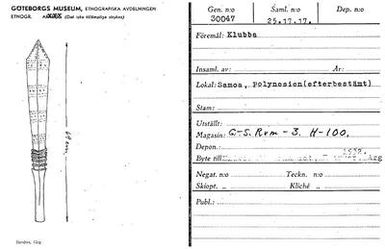 GÖTEBORGS MUSEUM, ETNOGRAFISKA AVDELNINGEN
ETNOGR. (Det icke tillämpliga strykes)
69 cm.
Gen. n:o
30047
Saml. n:o
25.17.17.
Dep. n:o
Föremål: Klubba
Insaml. av:
År:
Lokal: Samoa, Polynesien(efterbestämt)
Stam:
Utställt:
Magasin: G-S. Rvm - 3. H-100.
Depon.
Byte till
1932.
Negat. n:o
Teckn. n:o
Skiopt.
Kliché
Publ.: